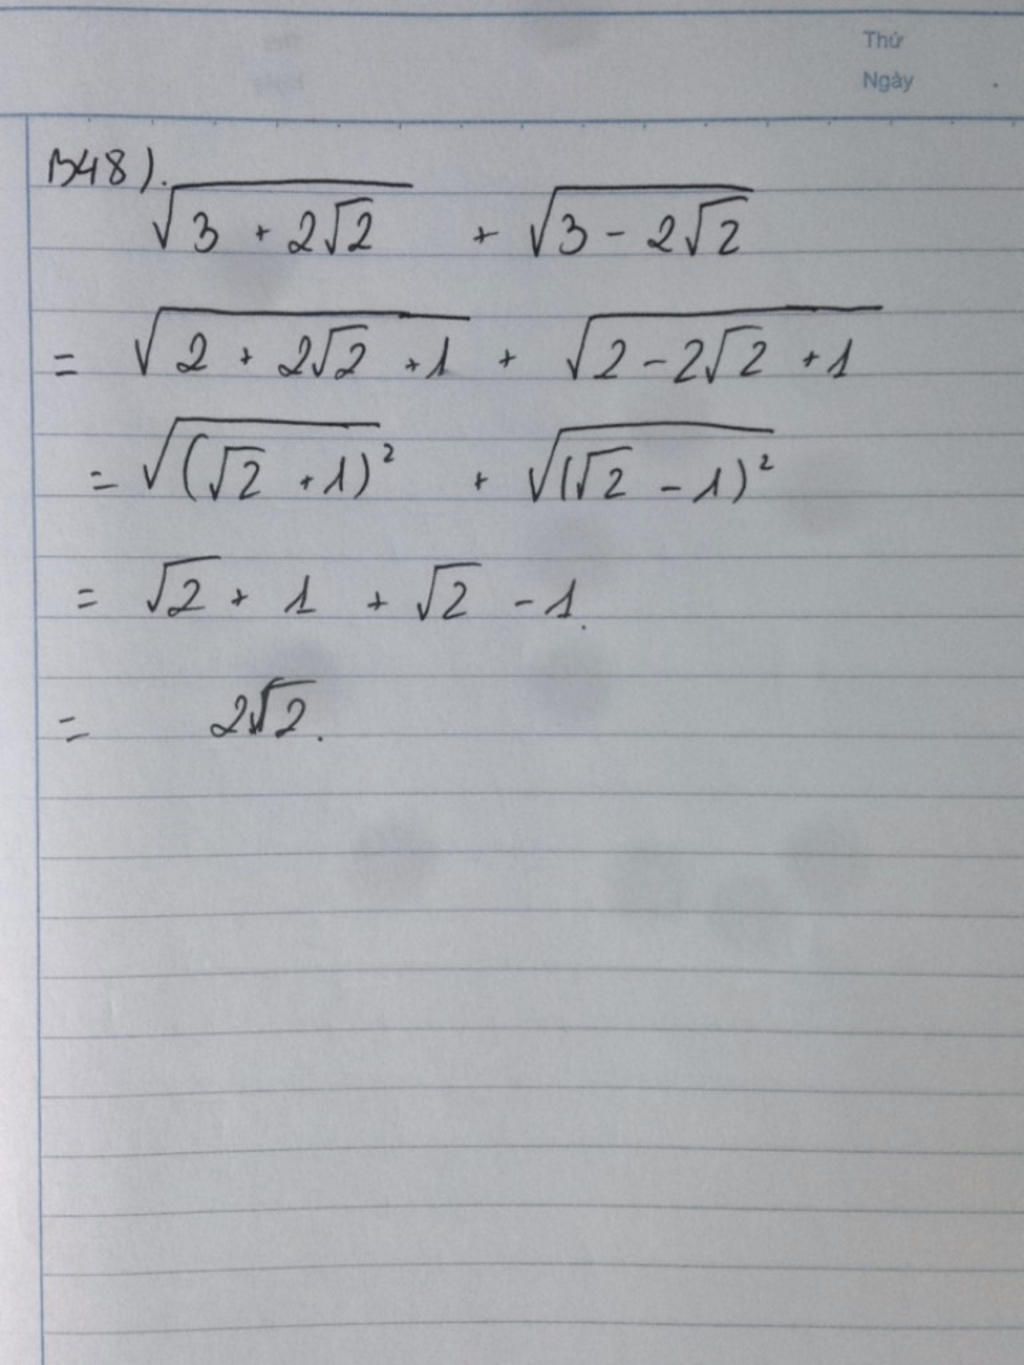 Thứ
Ngày
B48).
√(3 + 2√2) + √(3 - 2√2)
= √(2 + 2√2 + 1) + √(2 - 2√2 + 1)
= √((√2 + 1)²) + √((√2 - 1)²)
= √2 + 1 + √2 - 1.
= 2√2.